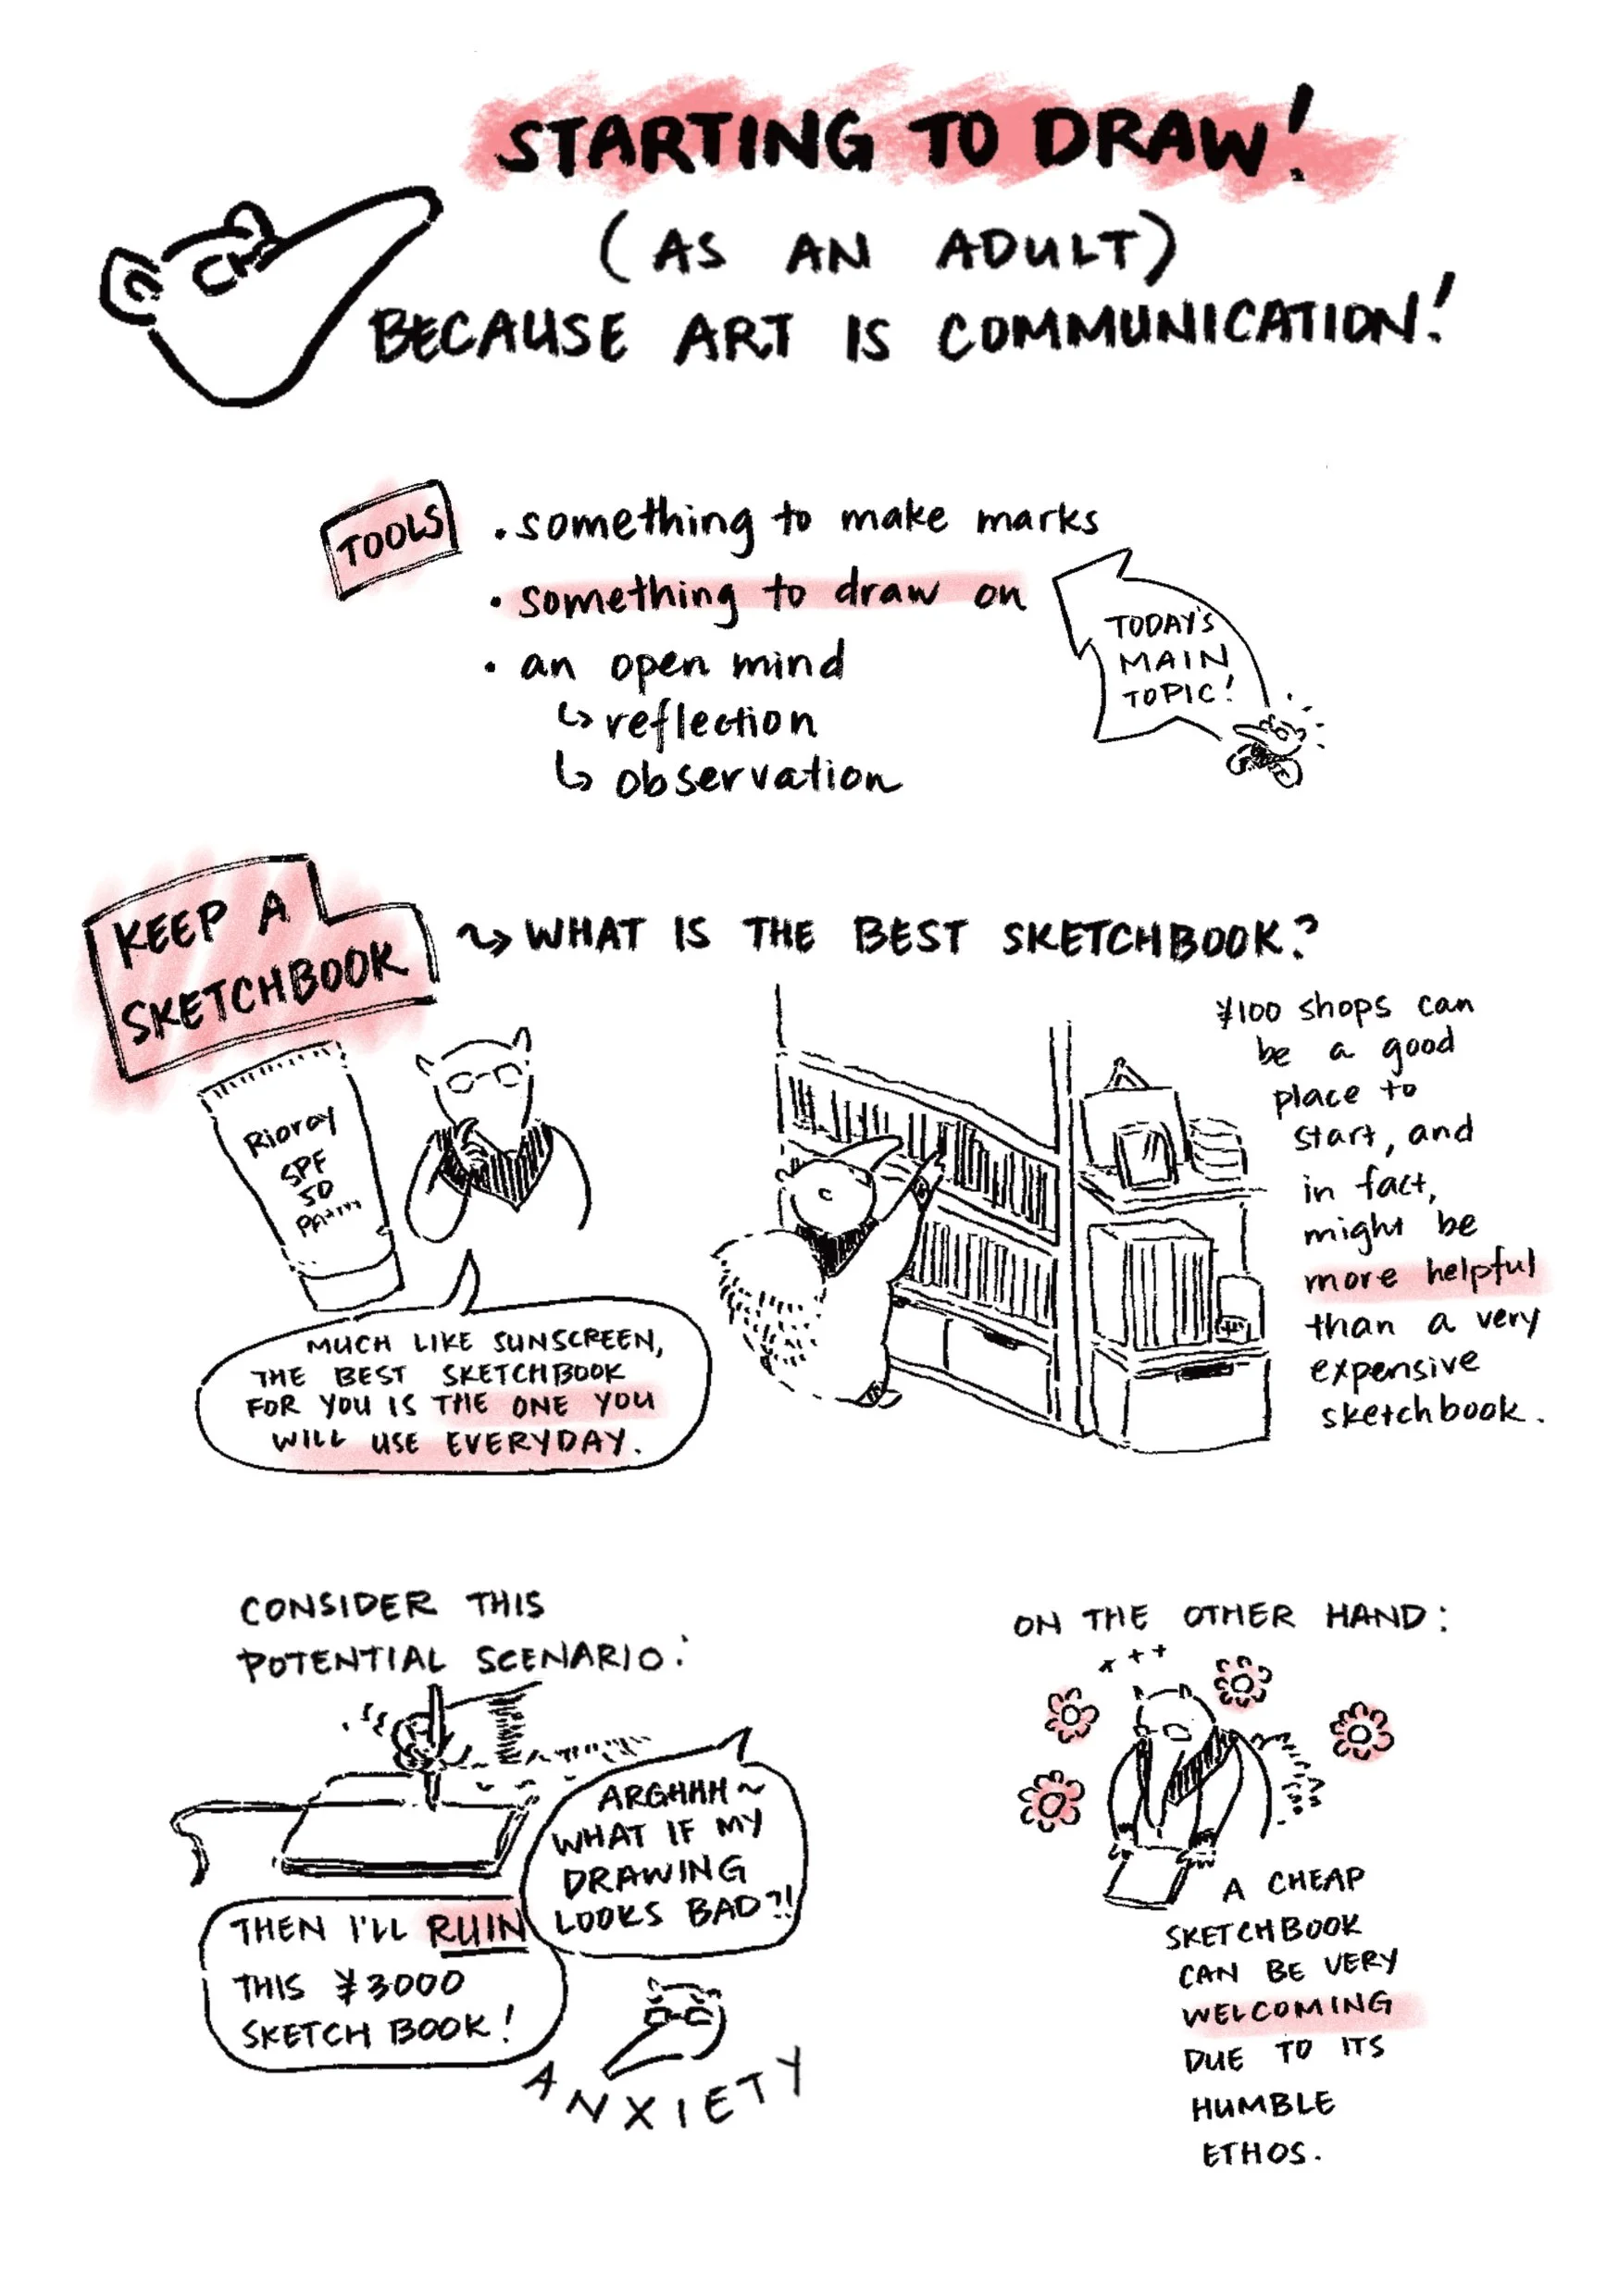 STARTING TO DRAW!
(AS AN ADULT)
BECAUSE ART IS COMMUNICATION!
TOOLS
• something to make marks
• something to draw on
• an open mind
↳ reflection
↳ observation
TODAY'S
MAIN
TOPIC!
KEEP A
SKETCHBOOK
WHAT IS THE BEST SKETCHBOOK?
Rioray
SPF
50
PA++++
MUCH LIKE SUNSCREEN,
THE BEST SKETCHBOOK
FOR YOU IS THE ONE YOU
WILL USE EVERYDAY.
¥100 shops can
be a good
place to
start, and
in fact,
might be
more helpful
than a very
expensive
sketchbook.
CONSIDER THIS
POTENTIAL SCENARIO:
ARGHHH~
WHAT IF MY
DRAWING
LOOKS BAD?!
THEN I'LL RUIN
THIS ¥3000
SKETCH BOOK!
ANXIETY
ON THE OTHER HAND:
A CHEAP
SKETCHBOOK
CAN BE VERY
WELCOMING
DUE TO ITS
HUMBLE
ETHOS.